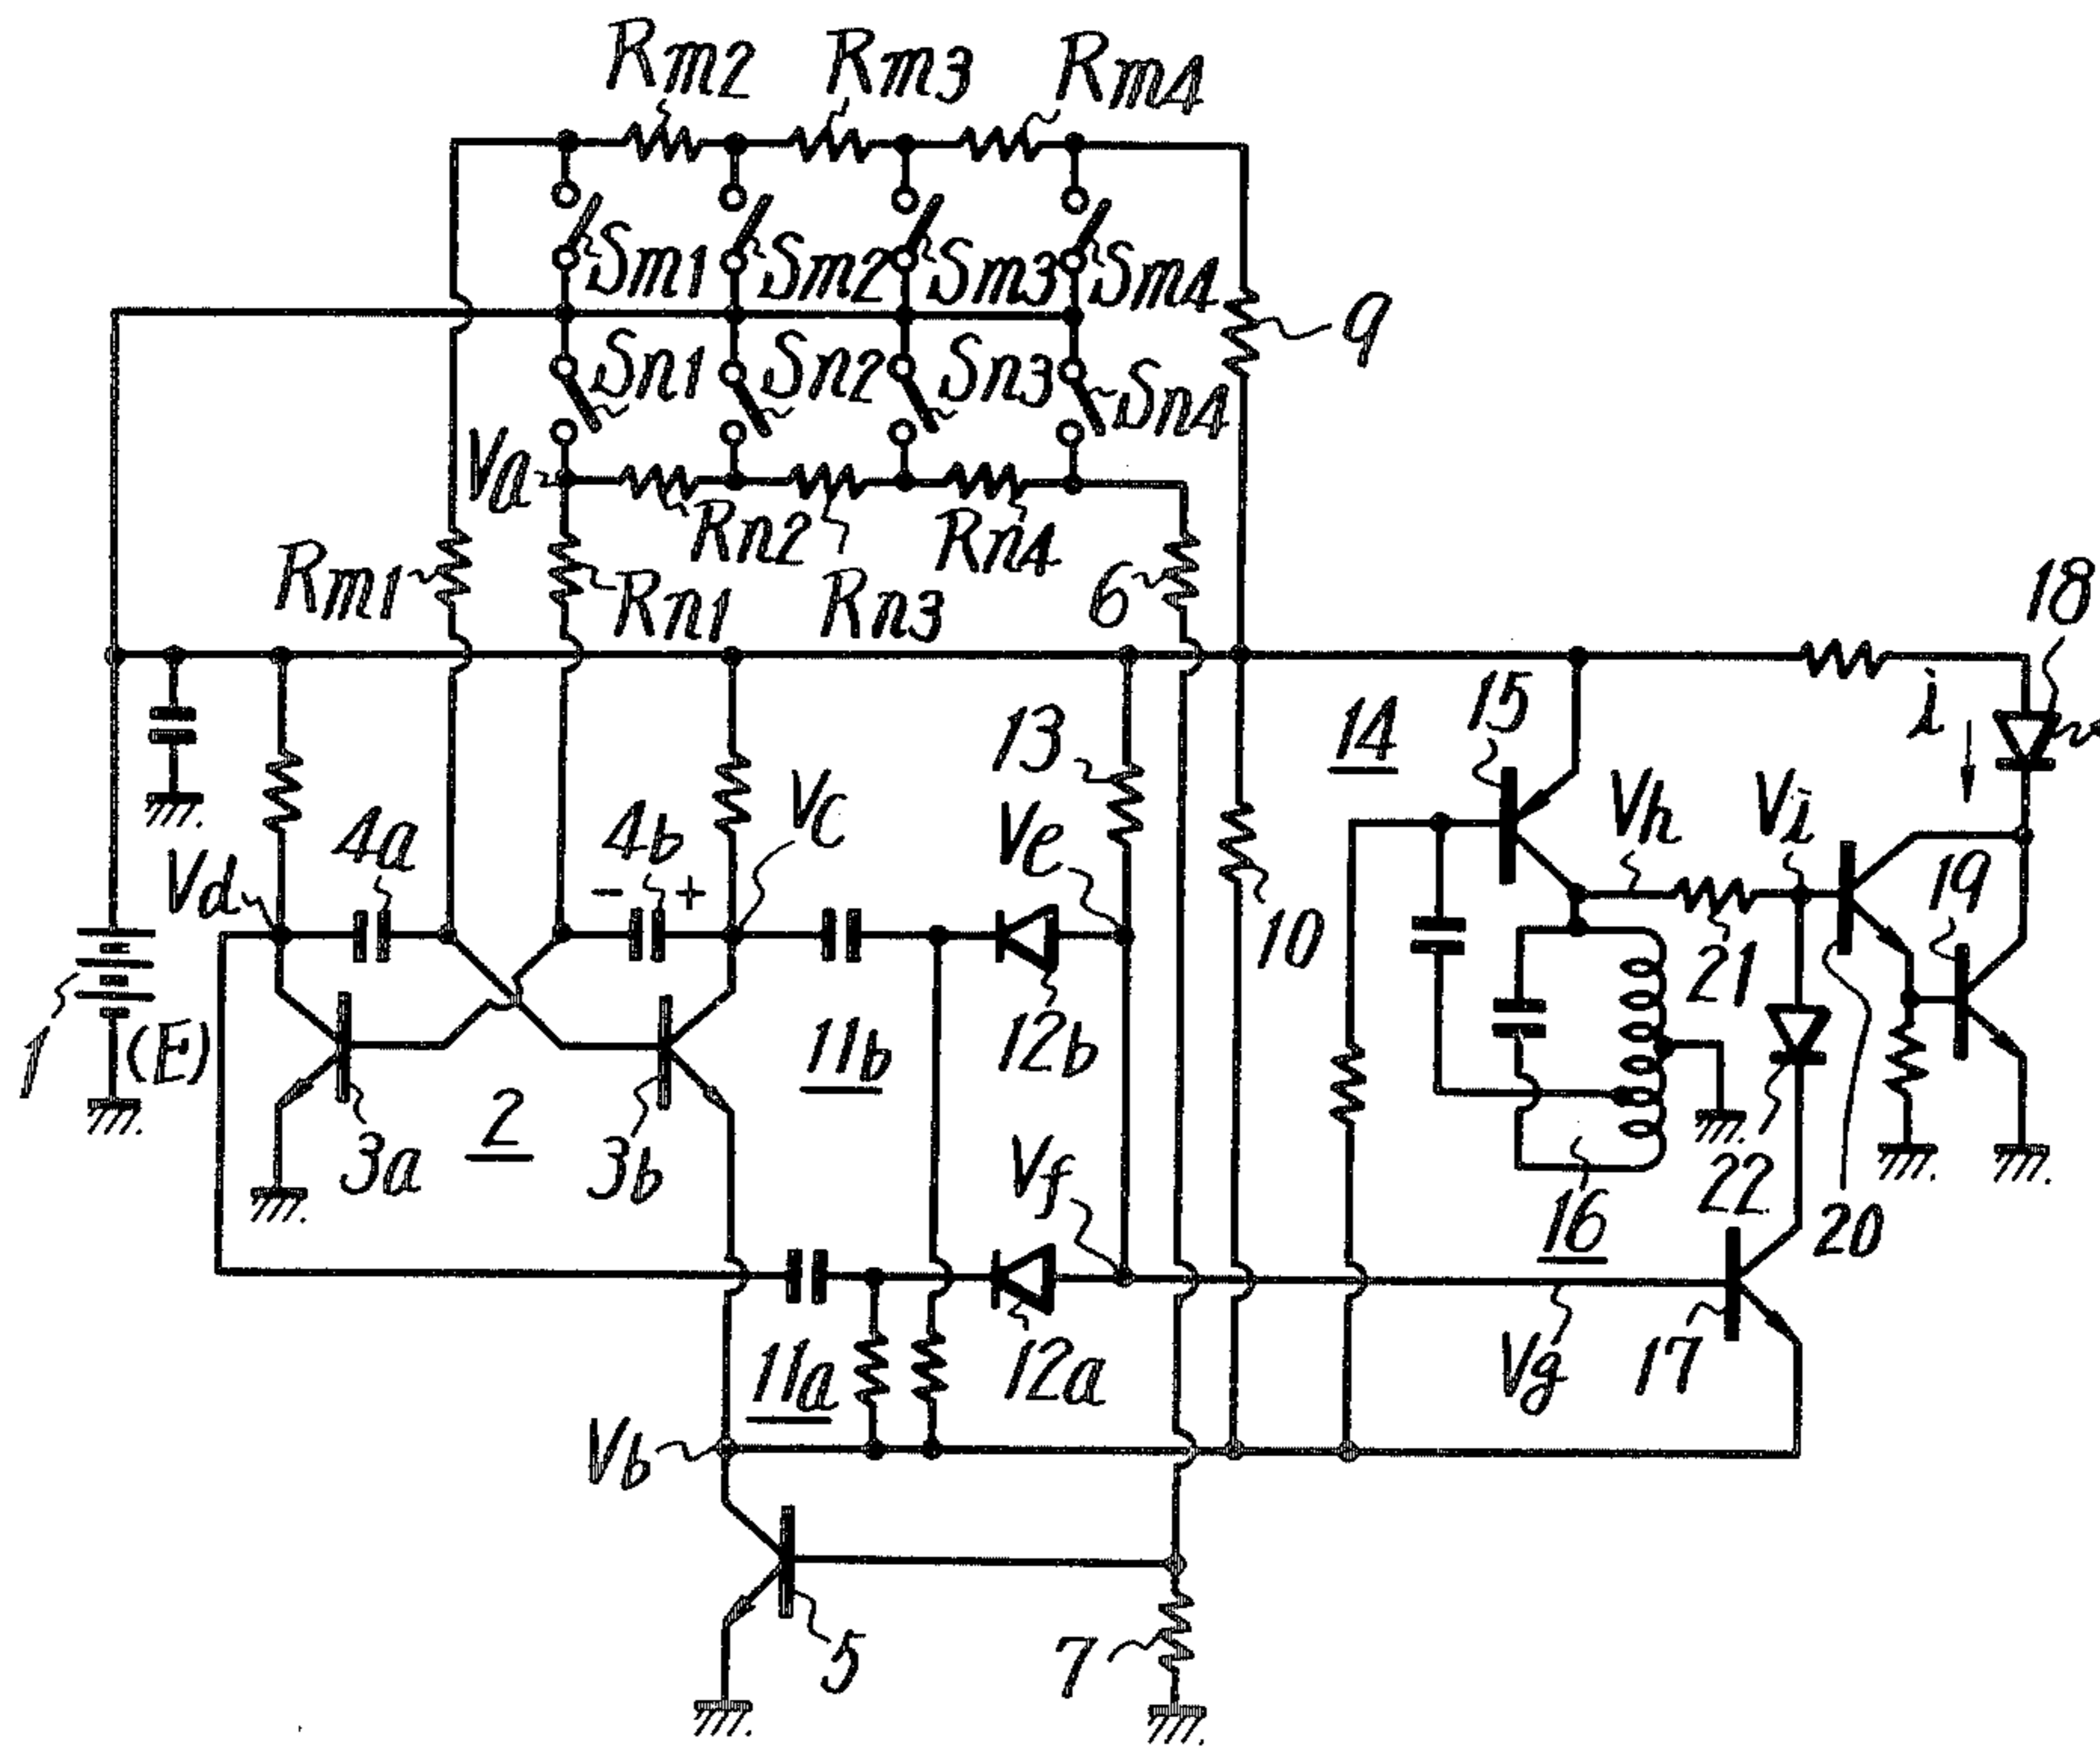 Rm2 Rm3 Rm4
Sm1 Sm2 Sm3 Sm4
9
Sn1 Sn2 Sn3 Sn4
Va
Rn2 Rn4
Rm1 Rn1 Rn3 6
18
i
13 14 15
Vd 4a 4b Vc Ve Vh Vi
- +
19
10
21
1 (E)
11b 12b
2
3a 3b
Vf
16 22 20
11a 12a
Vg 17
Vb
5 7